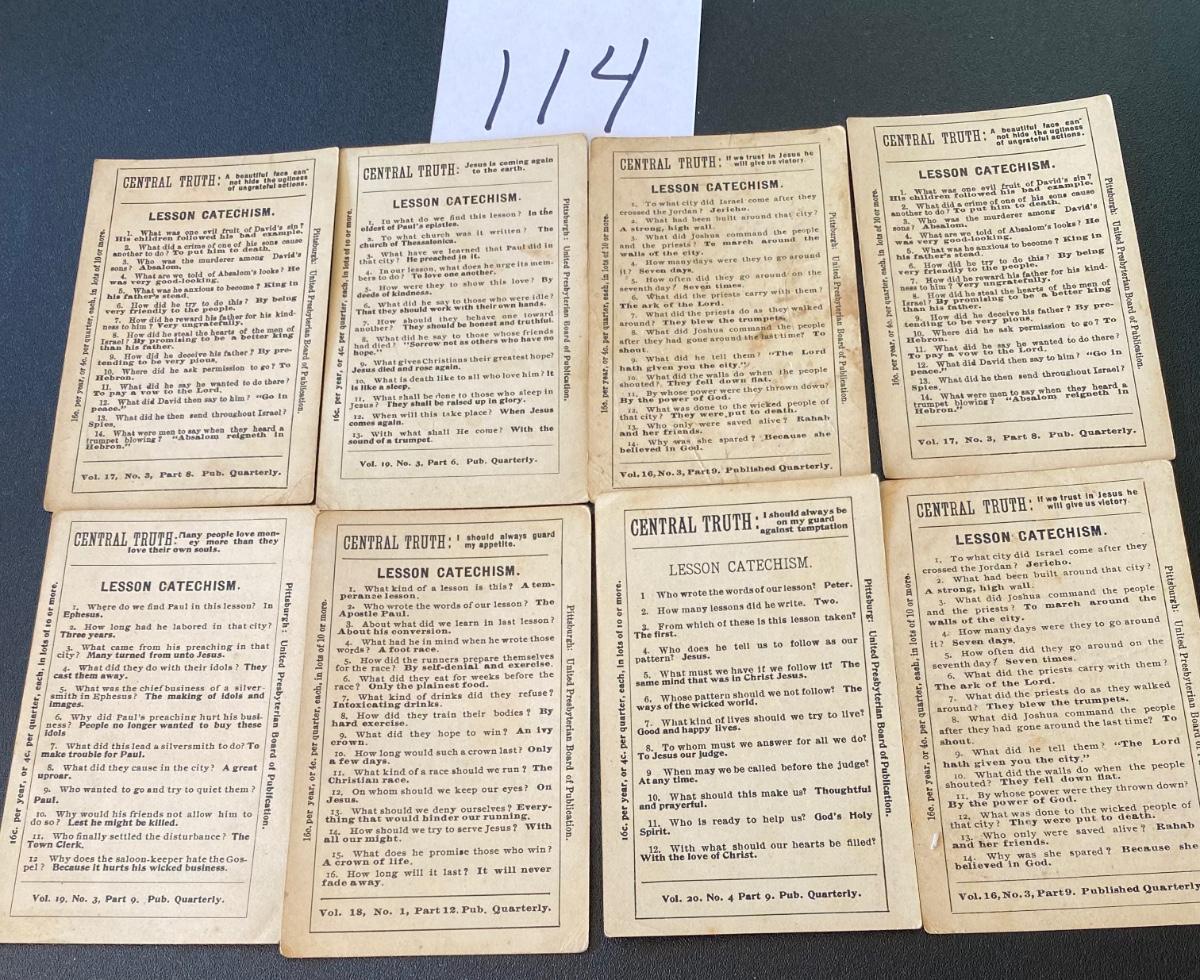 114
CENTRAL TRUTH: A beautiful face can
not hide the ugliness
of ungrateful actions.
LESSON CATECHISM.
1. What was one evil fruit of David's sin?
His children followed his bad example.
2. What did a crime of one of his sons cause
another to do? To put him to death.
3. Who was the murderer among David's
sons? Absalom.
4. What are we told of Absalom's looks? He
was very good-looking.
5. What was he anxious to become? King in
his father's stead.
6. How did he try to do this? By being
very friendly to the people.
7. How did he reward his father for his kind-
ness to him? Very ungratefully.
8. How did he steal the hearts of the men of
Israel? By promising to be a better king
than his father.
9. How did he deceive his father? By pre-
tending to be very pious.
10. Where did he ask permission to go? To
Hebron.
11. What did he say he wanted to do there?
To pay a vow to the Lord.
12. What did David then say to him? "Go in
peace."
13. What did he then send throughout Israel?
Spies.
14. What were men to say when they heard a
trumpet blowing? "Absalom reigneth in
Hebron."
Vol. 17, No. 3, Part 8. Pub. Quarterly.
16c. per year, or 4c. per quarter, each, in lots of 10 or more.
Pittsburgh: United Presbyterian Board of Publication.
CENTRAL TRUTH: Jesus is coming again
to the earth.
LESSON CATECHISM.
1. In what do we find this lesson? In the
eldest of Paul's epistles.
2. To what church was it written? The
church of Thessalonica.
3. What have we learned that Paul did in
that city? He preached in it.
4. In our lesson, what does he urge its mem-
bers to do? To love one another.
5. How were they to show this love? By
deeds of kindness.
6. What did he say to those who were idle?
That they should work with their own hands.
7. How should they behave one toward
another? They should be honest and truthful.
8. What did he say to those whose friends
had died? "Sorrow not as others who have no
hope."
9. What gives Christians their greatest hope?
Jesus died and rose again.
10. What is death like to all who love him? It
is like a sleep.
11. What shall be done to those who sleep in
Jesus? They shall be raised up in glory.
12. When will this take place? When Jesus
comes again.
13. With what shall He come? With the
sound of a trumpet.
Vol. 19, No. 3, Part 6. Pub. Quarterly.
16c. per year, or 4c. per quarter, each, in lots of 10 or more.
Pittsburgh: United Presbyterian Board of Publication.
CENTRAL TRUTH: If we trust in Jesus he
will give us victory.
LESSON CATECHISM.
1. To what city did Israel come after they
crossed the Jordan? Jericho.
2. What had been built around that city?
A strong, high wall.
3. What did Joshua command the people
and the priests? To march around the
walls of the city.
4. How many days were they to go around
it? Seven days.
5. How often did they go around on the
seventh day? Seven times.
6. What did the priests carry with them?
The ark of the Lord.
7. What did the priests do as they walked
around? They blew the trumpets.
8. What did Joshua command the people
after they had gone around the last time? To
shout.
9. What did he tell them? "The Lord
hath given you the city."
10. What did the walls do when the people
shouted? They fell down flat.
11. By whose power were they thrown down?
By the power of God.
12. What was done to the wicked people of
that city? They were put to death.
13. Who only were saved alive? Rahab
and her friends.
14. Why was she spared? Because she
believed in God.
Vol. 16, No. 3, Part 9. Published Quarterly.
16c. per year, or 4c. per quarter, each, in lots of 10 or more.
Pittsburgh: United Presbyterian Board of Publication.
CENTRAL TRUTH: A beautiful face can
not hide the ugliness
of ungrateful actions.
LESSON CATECHISM.
1. What was one evil fruit of David's sin?
His children followed his bad example.
2. What did a crime of one of his sons cause
another to do? To put him to death.
3. Who was the murderer among David's
sons? Absalom.
4. What are we told of Absalom's looks? He
was very good-looking.
5. What was he anxious to become? King in
his father's stead.
6. How did he try to do this? By being
very friendly to the people.
7. How did he reward his father for his kind-
ness to him? Very ungratefully.
8. How did he steal the hearts of the men of
Israel? By promising to be a better king
than his father.
9. How did he deceive his father? By pre-
tending to be very pious.
10. Where did he ask permission to go? To
Hebron.
11. What did he say he wanted to do there?
To pay a vow to the Lord.
12. What did David then say to him? "Go in
peace."
13. What did he then send throughout Israel?
Spies.
14. What were men to say when they heard a
trumpet blowing? "Absalom reigneth in
Hebron."
Vol. 17, No. 3, Part 8. Pub. Quarterly.
16c. per year, or 4c. per quarter, each, in lots of 10 or more.
Pittsburgh: United Presbyterian Board of Publication.
CENTRAL TRUTH: Many people love mon-
ey more than they
love their own souls.
LESSON CATECHISM.
1. Where do we find Paul in this lesson? In
Ephesus.
2. How long had he labored in that city?
Three years.
3. What came from his preaching in that
city? Many turned from unto Jesus.
4. What did they do with their idols? They
cast them away.
5. What was the chief business of a silver-
smith in Ephesus? The making of idols and
images.
6. Why did Paul's preaching hurt his busi-
ness? People no longer wanted to buy these
idols
7. What did this lead a silversmith to do? To
make trouble for Paul.
8. What did they cause in the city? A great
uproar.
9. Who wanted to go and try to quiet them?
Paul.
10. Why would his friends not allow him to
do so? Lest he might be killed.
11. Who finally settled the disturbance? The
Town Clerk.
12 Why does the saloon-keeper hate the Gos-
pel? Because it hurts his wicked business.
Vol. 19, No. 3, Part 9. Pub. Quarterly.
16c. per year, or 4c. per quarter, each, in lots of 10 or more.
Pittsburgh: United Presbyterian Board of Publication.
CENTRAL TRUTH: I should always guard
my appetite.
LESSON CATECHISM.
1. What kind of a lesson is this? A tem-
perance lesson.
2. Who wrote the words of our lesson? The
Apostle Paul.
3. About what did we learn in last lesson?
About his conversion.
4. What had he in mind when he wrote those
words? A foot race.
5. How did the runners prepare themselves
for the race? By self-denial and exercise.
6. What did they eat for weeks before the
race? Only the plainest food.
7. What kind of drinks did they refuse?
Intoxicating drinks.
8. How did they train their bodies? By
hard exercise.
9. What did they hope to win? An ivy
crown.
10. How long would such a crown last? Only
a few days.
11. What kind of a race should we run? The
Christian race.
12. On whom should we keep our eyes? On
Jesus.
13. What should we deny ourselves? Every-
thing that would hinder our running.
14. How should we try to serve Jesus? With
all our might.
15. What does he promise those who win?
A crown of life.
16. How long will it last? It will never
fade away.
Vol. 18, No. 1, Part 12. Pub. Quarterly.
16c. per year, or 4c. per quarter, each, in lots of 10 or more.
Pittsburgh: United Presbyterian Board of Publication.
CENTRAL TRUTH: I should always be
on my guard
against temptation
LESSON CATECHISM.
1 Who wrote the words of our lesson? Peter.
2. How many lessons did he write. Two.
3. From which of these is this lesson taken?
The first.
4. Who does he tell us to follow as our
pattern? Jesus.
5. What must we have if we follow it? The
same mind that was in Christ Jesus.
6. Whose pattern should we not follow? The
ways of the wicked world.
7. What kind of lives should we try to live?
Good and happy lives.
8. To whom must we answer for all we do?
To Jesus our judge.
9 When may we be called before the judge?
At any time.
10. What should this make us? Thoughtful
and prayerful.
11. Who is ready to help us? God's Holy
Spirit.
12. With what should our hearts be filled?
With the love of Christ.
Vol. 20. No. 4 Part 9. Pub. Quarterly.
16c. per year, or 4c. per quarter, each, in lots of 10 or more.
Pittsburg: United Presbyterian Board of Publication.
CENTRAL TRUTH: If we trust in Jesus he
will give us victory.
LESSON CATECHISM.
1. To what city did Israel come after they
crossed the Jordan? Jericho.
2. What had been built around that city?
A strong, high wall.
3. What did Joshua command the people
and the priests? To march around the
walls of the city.
4. How many days were they to go around
it? Seven days.
5. How often did they go around on the
seventh day? Seven times.
6. What did the priests carry with them?
The ark of the Lord.
7. What did the priests do as they walked
around? They blew the trumpets.
8. What did Joshua command the people
after they had gone around the last time? To
shout.
9. What did he tell them? "The Lord
hath given you the city."
10. What did the walls do when the people
shouted? They fell down flat.
11. By whose power were they thrown down?
By the power of God.
12. What was done to the wicked people of
that city? They were put to death.
13. Who only were saved alive? Rahab
and her friends.
14. Why was she spared? Because she
believed in God.
Vol. 16, No. 3, Part 9. Published Quarterly
16c. per year, or 4c. per quarter, each, in lots of 10 or more.
Pittsburgh: United Presbyterian Board of